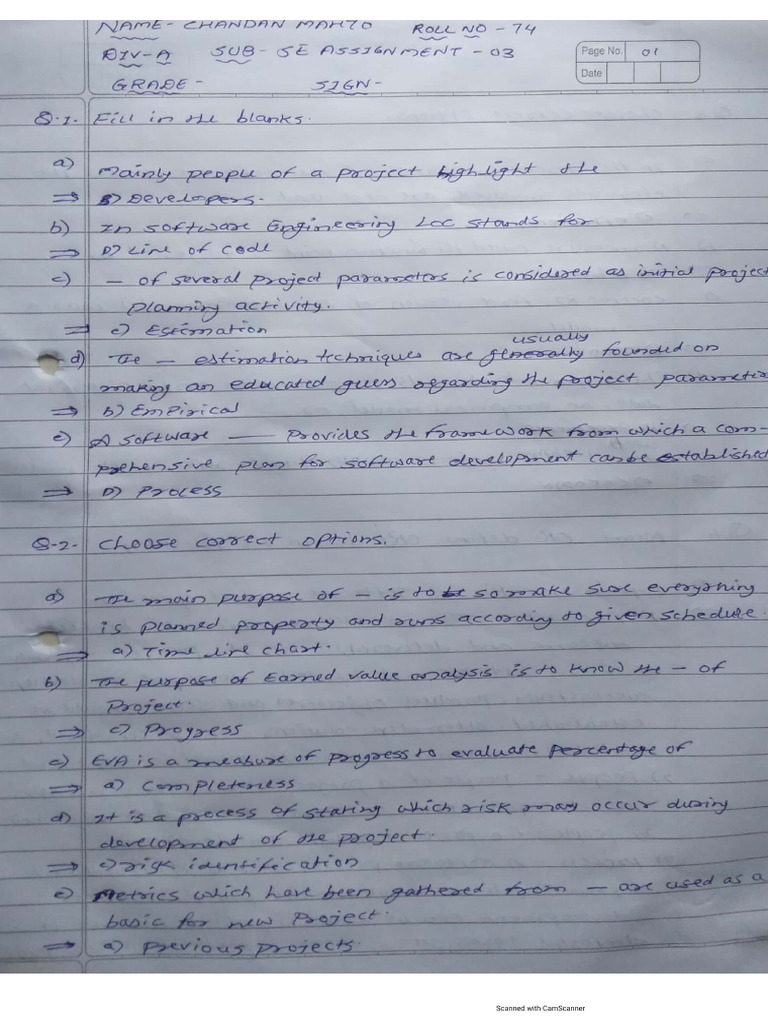 NAME- CHANDAN MAHTO ROLL NO - 74
DIV-A SUB- SE ASSIGNMENT - 03
Page No. 01
Date
GRADE- SIGN-
Q.1. Fill in the blanks.
a) Mainly people of a project highlight the
⇒ B) Developers.
b) In software Engineering LOC stands for
⇒ D) Line of code
c) — of several project parameters is considered as initial project
planning activity.
⇒ c) Estimation
usually
d) The — estimation techniques are generally founded on
making an educated guess regarding the project
⇒ b) Empirical
e) A software —— Provides the framework from which a com-
prehensive plan for software development can be established
⇒ D) Process
Q-2- choose correct options.
a) The main purpose of — is to so make sure everything
is planned property and runs according to given schedule.
⇒ a) Time line chart.
b) The purpose of Earned value analysis is to know the — of
Project.
⇒ c) Progress
c) EVA is a measure of progress to evaluate percentage of
⇒ a) completeness
d) It is a process of stating which risk may occur during
development of the project.
⇒ c) risk identification
e) Metrics which have been gathered from — are used as a
basic for new Project.
⇒ a) Previous projects.
Scanned with CamScanner